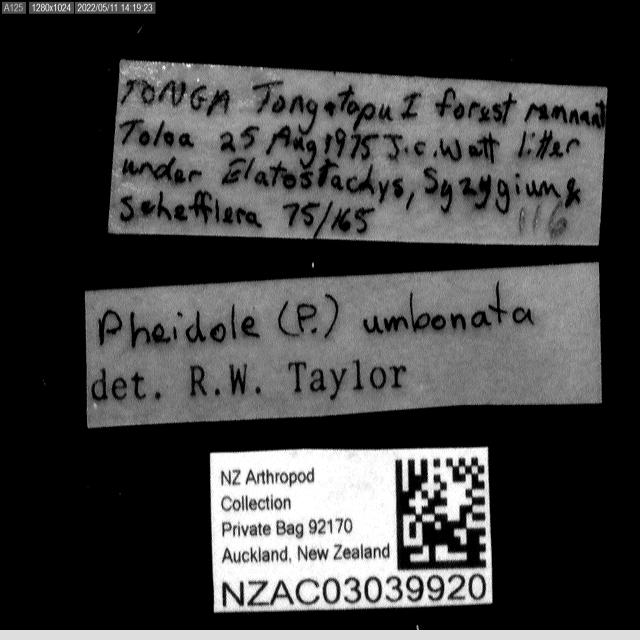 A125 1280x1024 2022/05/11 14:19:23
TONGA Tongatapu I forest remnant
Toloa 25 Aug 1975 J.C. Watt litter
under Elatostachys, Syzygium &
Schefflera 75/165 116
Pheidole (P.) umbonata
det. R.W. Taylor
NZ Arthropod
Collection
Private Bag 92170
Auckland, New Zealand
NZAC03039920